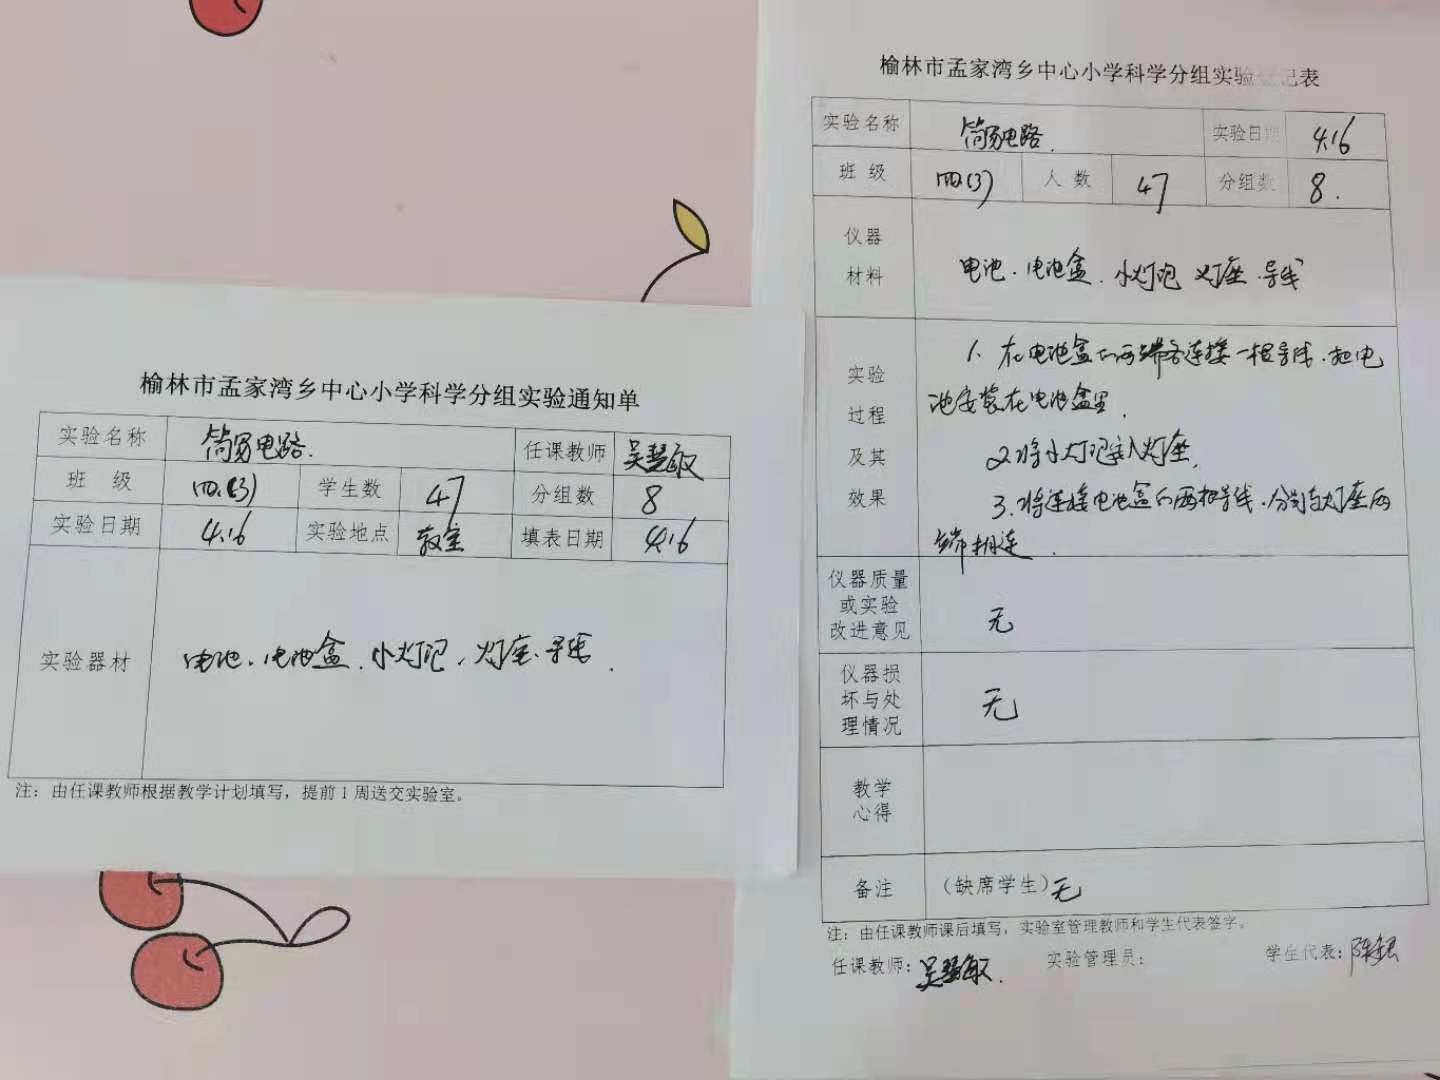 榆林市孟家湾乡中心小学科学分组实验通知单
实验名称 简易电路. 任课教师 吴慧敏
班 级 四.(3) 学生数 47 分组数 8
实验日期 4.16 实验地点 教室 填表日期 4.16
实验器材 电池、电池盒、小灯泡、灯座、导线.
注：由任课教师根据教学计划填写，提前1周送交实验室。
榆林市孟家湾乡中心小学科学分组实验登记表
实验名称 简易电路. 实验日期 4.16
班 级 四.(3) 人 数 47 分组数 8.
仪器
材料
电池、电池盒、小灯泡 灯座、导线
实验
过程
及其
效果
1、在电池盒的两端各连接一根导线，把电
池安装在电池盒里.
2.将小灯泡旋入灯座.
3.将连接电池盒的两根导线，分别与灯座两
端相连.
仪器质量
或实验
改进意见
无
仪器损
坏与处
理情况
无
教学
心得
备注 （缺席学生）无
注：由任课教师课后填写，实验室管理教师和学生代表签字。
任课教师：吴慧敏. 实验管理员： 学生代表：陈